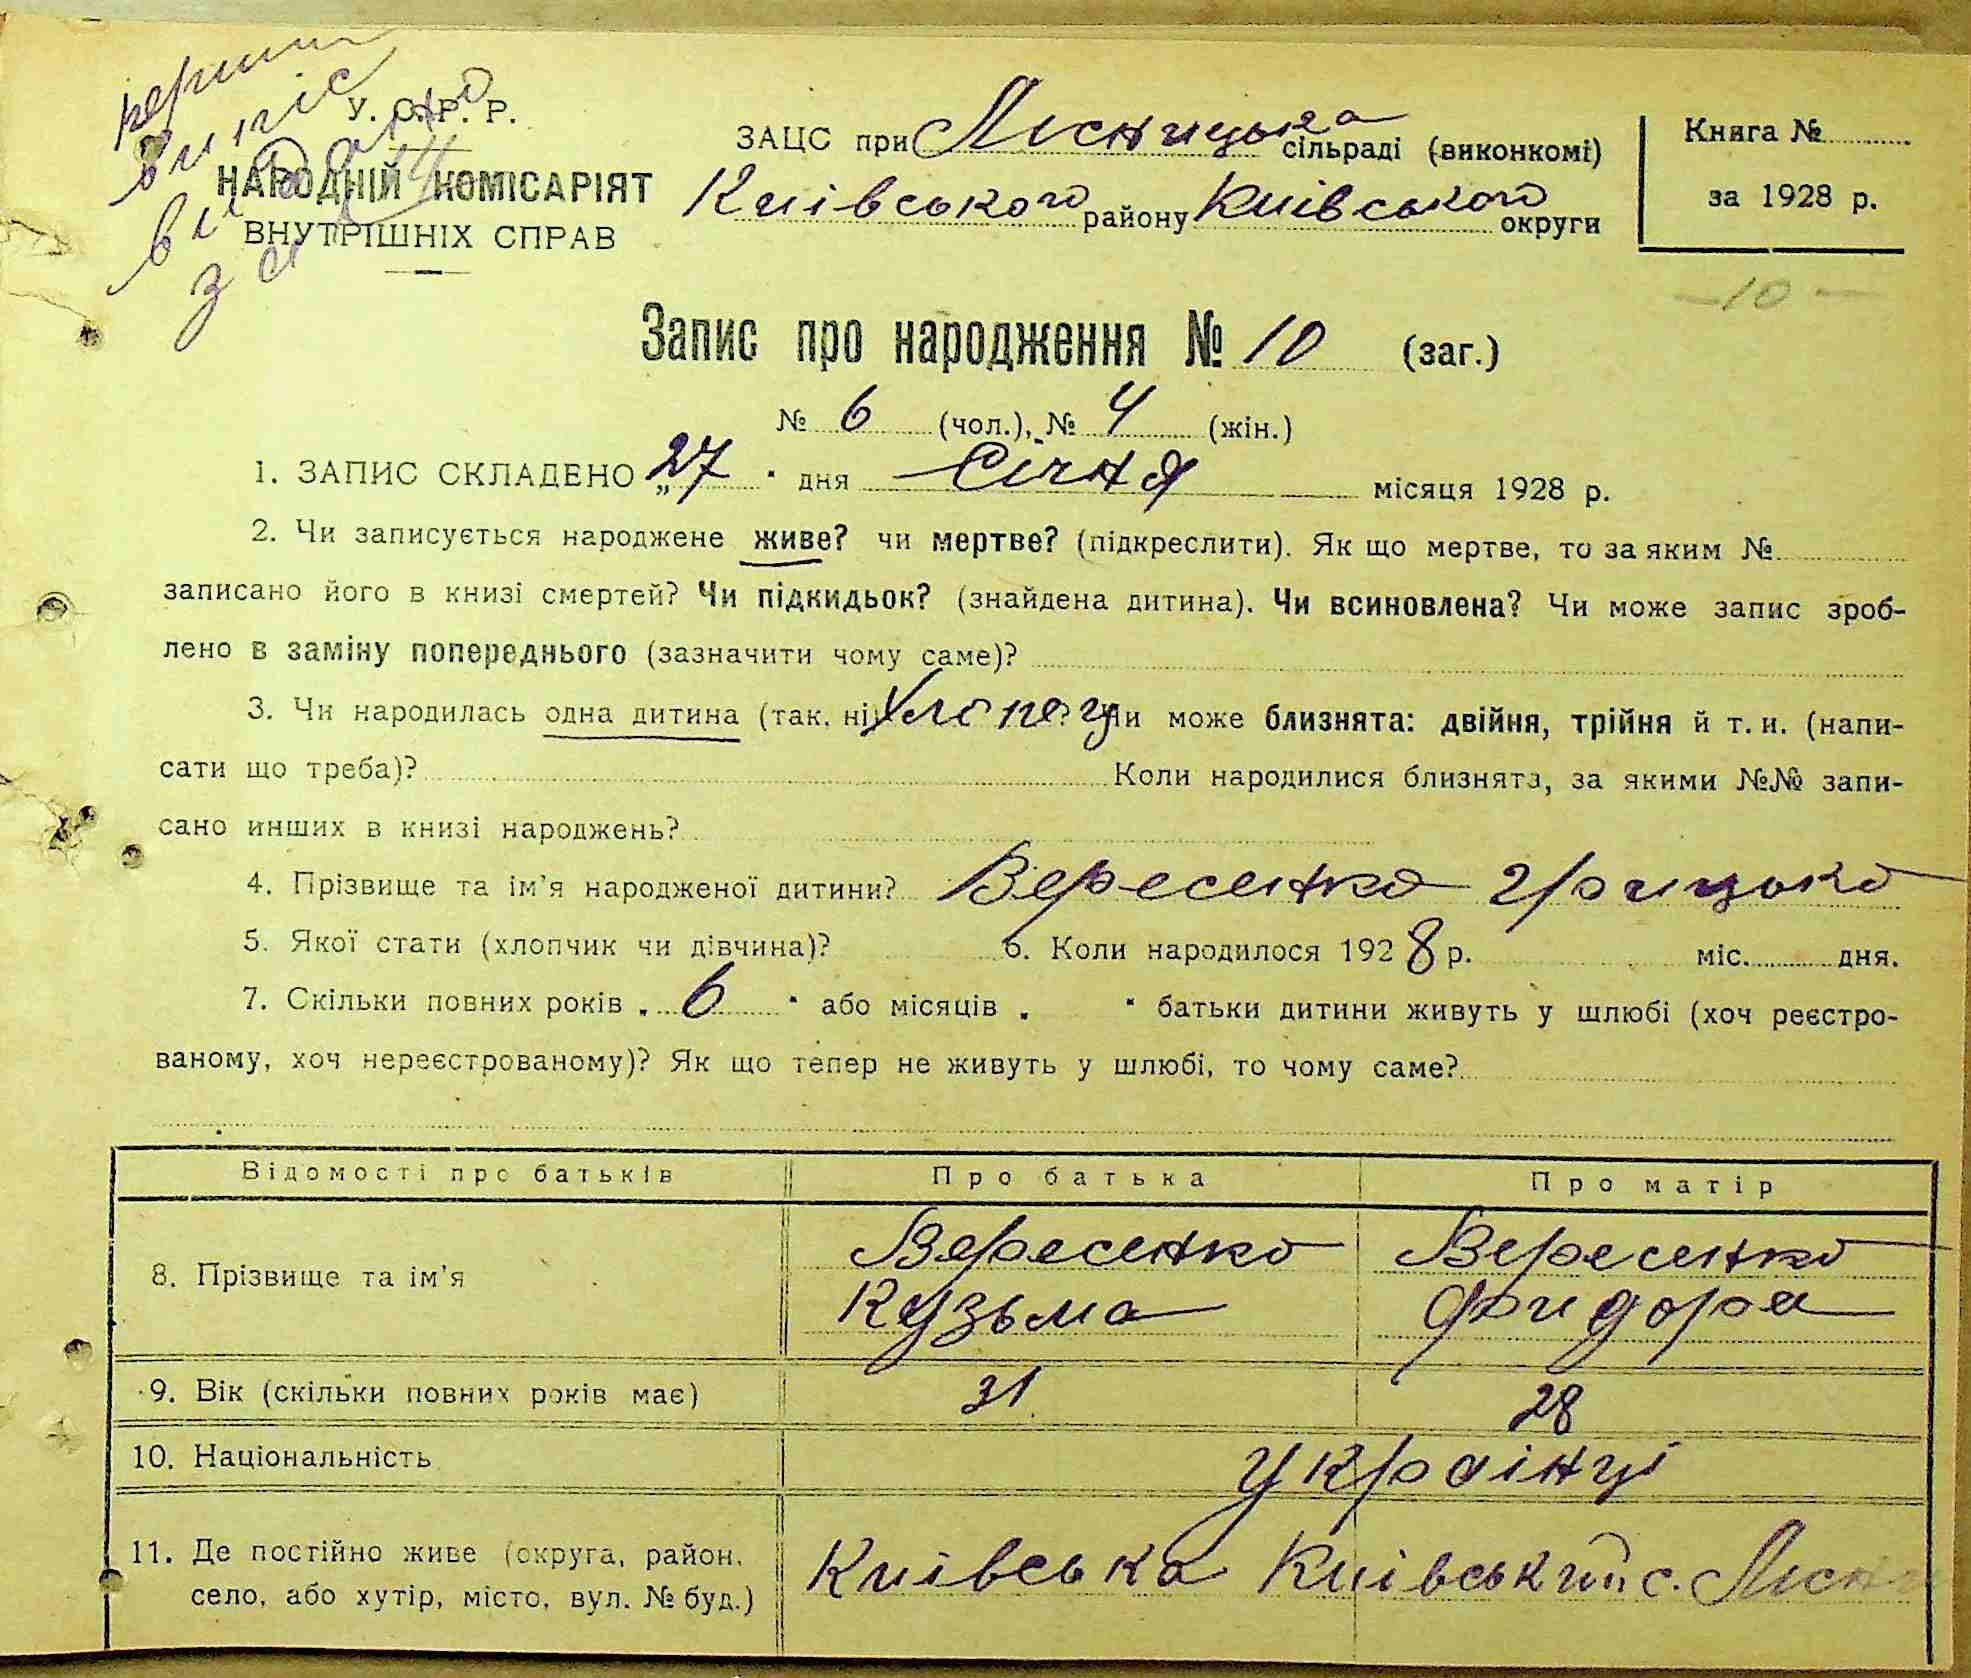 перший
випис
У. С. Р. Р.
видано
НАРОДНІЙ КОМІСАРІЯТ
ВНУТРІШНІХ СПРАВ
за
ЗАЦС при Лісницька сільраді (виконкомі)
Київського району Київського округи
Книга №
за 1928 р.
— 10 —
Запис про народження № 10 (заг.)
№ 6 (чол.), № 4 (жін.)
1. ЗАПИС СКЛАДЕНО „27" дня Січня місяця 1928 р.
2. Чи записується народжене живе? чи мертве? (підкреслити). Як що мертве, то за яким №
записано його в книзі смертей? Чи підкидьок? (знайдена дитина). Чи всиновлена? Чи може запис зроб-
лено в заміну попереднього (зазначити чому саме)?
3. Чи народилась одна дитина (так, ні) Хлопец? Чи може близнята: двійня, трійня й т. и. (напи-
сати що треба)? Коли народилися близнята, за якими №№ запи-
сано инших в книзі народжень?
4. Прізвище та ім'я народженої дитини? Вересенко Грицько
5. Якої стати (хлопчик чи дівчина)? 6. Коли народилося 1928 р. міс. дня.
7. Скільки повних років „ 6 " або місяців „ " батьки дитини живуть у шлюбі (хоч реєстро-
ваному, хоч нереєстрованому)? Як що тепер не живуть у шлюбі, то чому саме?
Відомості про батьків Про батька Про матір
8. Прізвище та ім'я
Вересенко
Кузьма
Вересенко
Фидора
9. Вік (скільки повних років має) 31 28
10. Національність Українці
11. Де постійно живе (округа, район,
село, або хутір, місто, вул. № буд.)
Київська Київський с. Лісн